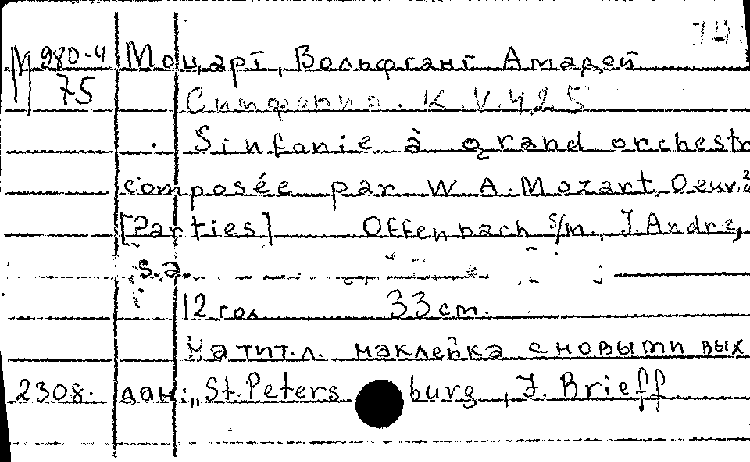 М 980-4 Моцарт, Вольфганг Амадей
75 Симфония. K.V.425
Sinfonie à grand orchestr
composée par W. A. Mozart. Oeuv.
[Parties] Offenbach s/m., J. Andre,
s.a.
12 гол. 33 cm.
На тит.л. наклейка с новыми вых
2308. дан: „St. Petersburg, J. Brieff